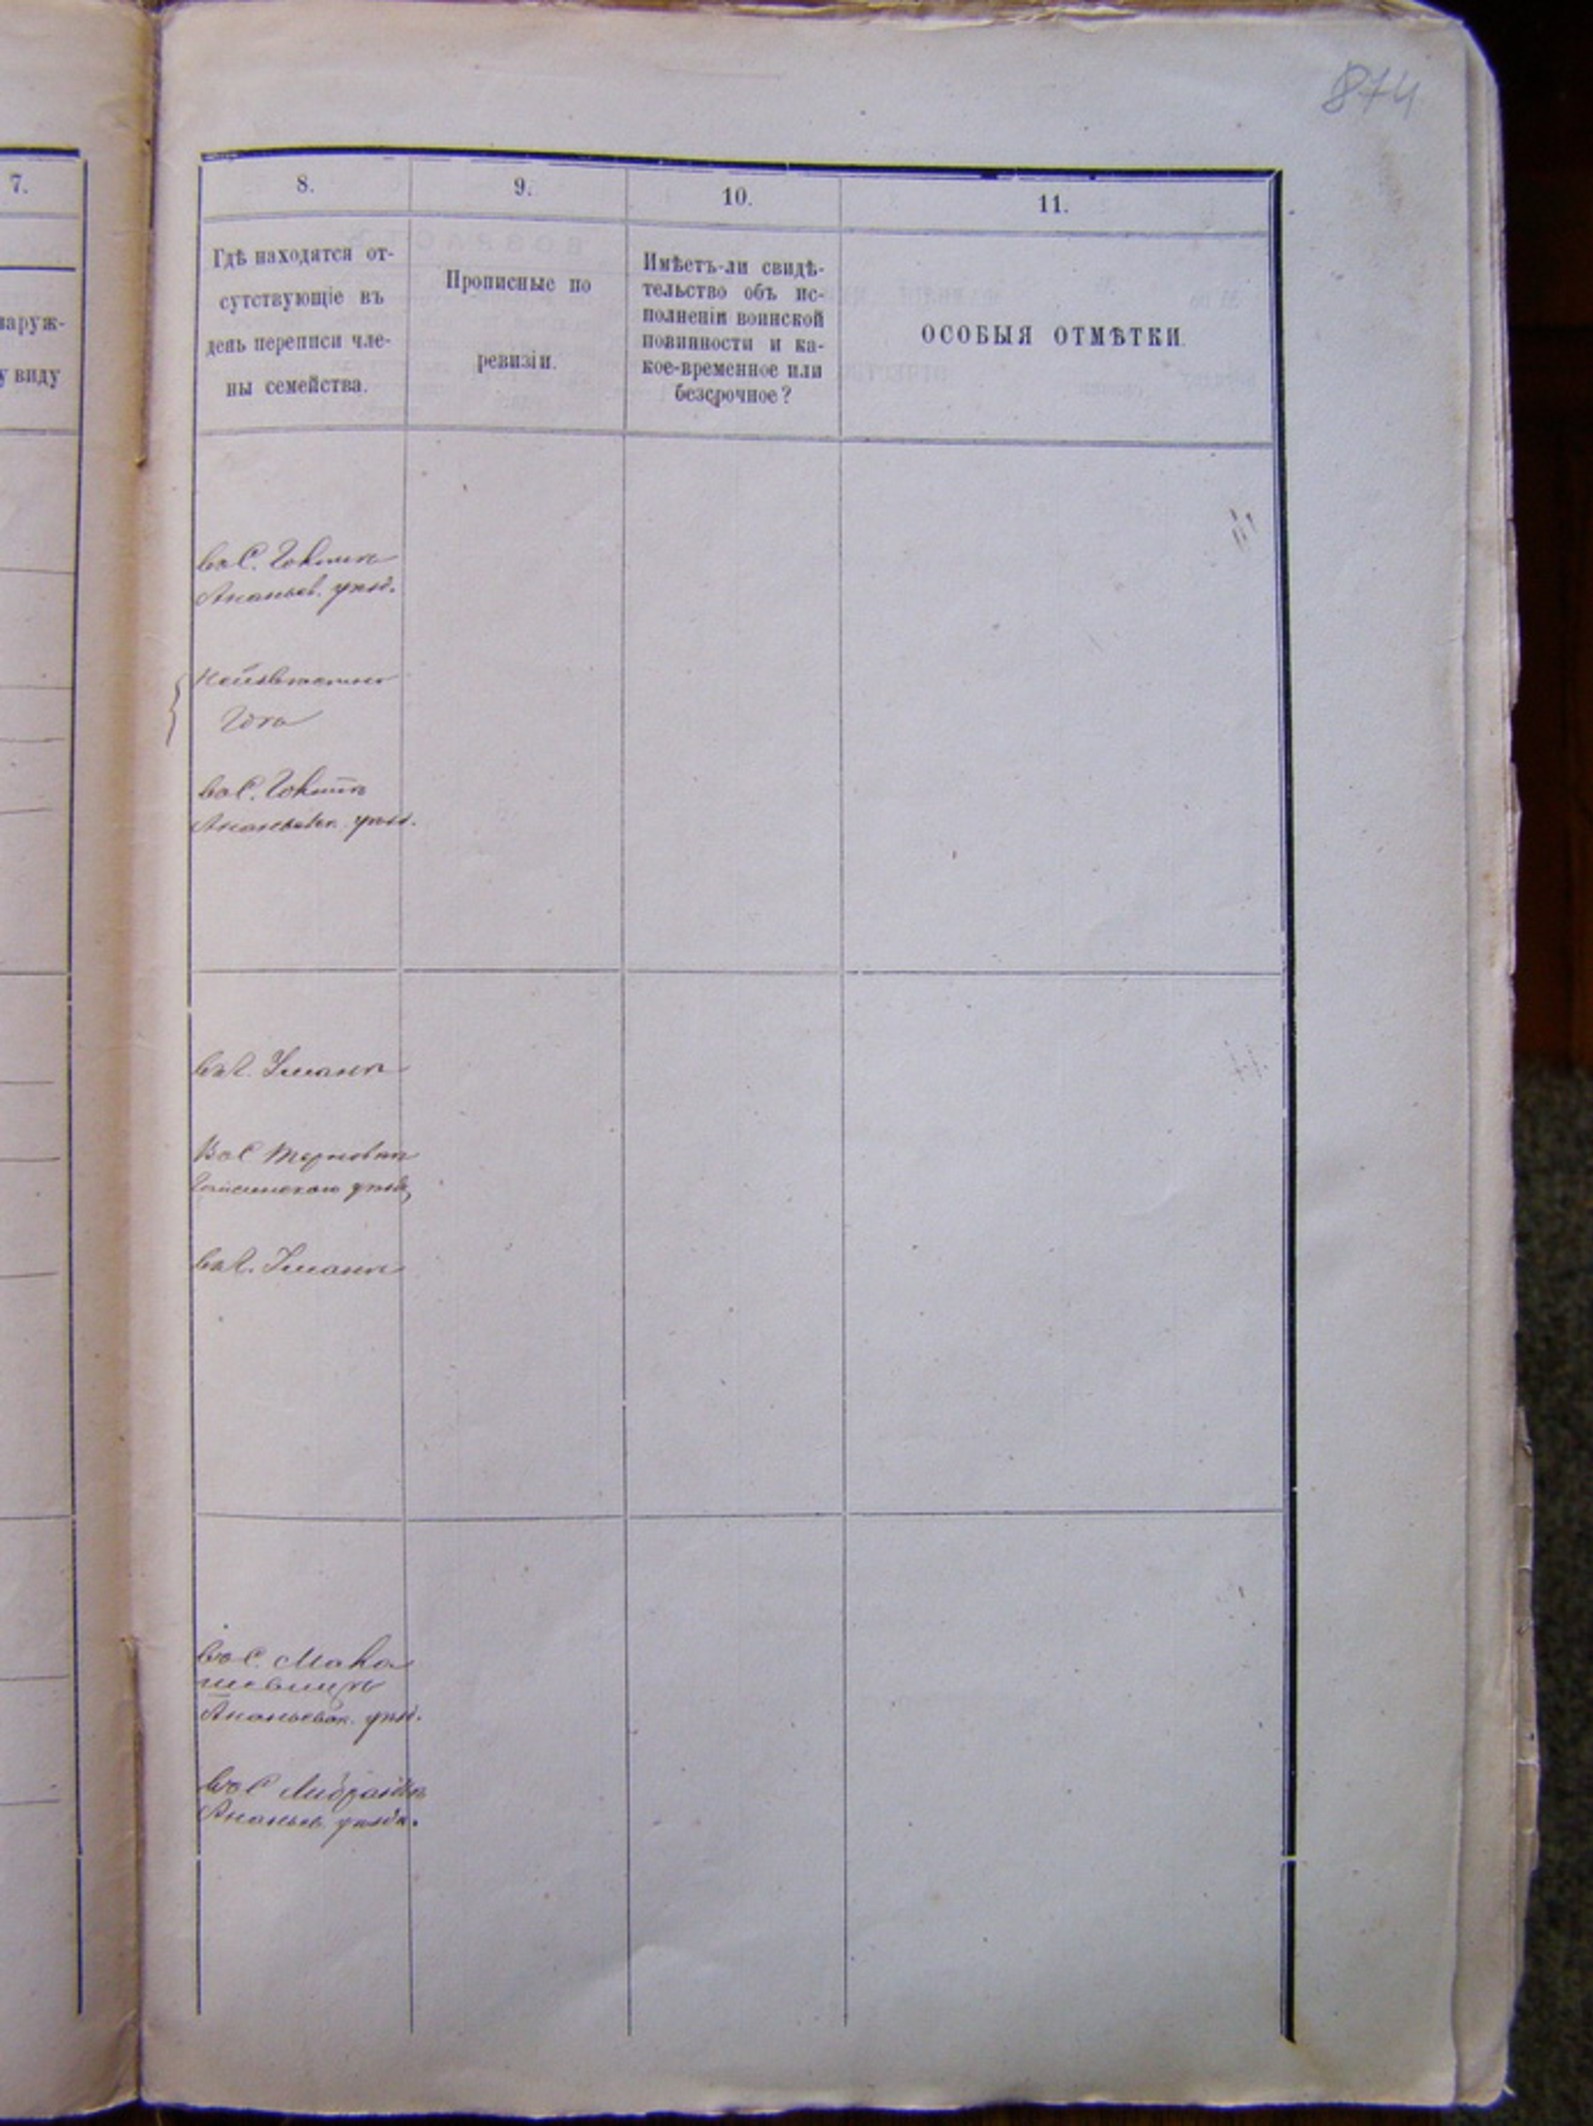 874
7.
8.
9.
10.
11.
наруж-
у виду
Гдѣ находятся от-
сутствующіе въ
день переписи чле-
ны семейства.
Прописные по
ревизіи.
Имѣетъ-ли свидѣ-
тельство объ ис-
полненіи воинской
повинности и ка-
кое-временное или
безсрочное?
ОСОБЫЯ ОТМѢТКИ.
въ С.
Ананьев. уѣзд.
Неизвѣстно
Гдѣ
въ С.
Ананьевск. уѣзд.
въ Г. Умани
Въ С Терновкѣ
Гайсинскаго уѣзда
въ Г. Умани
въ С.
Ананьевск. уѣзд.
въ С
Ананьев. уѣзда.